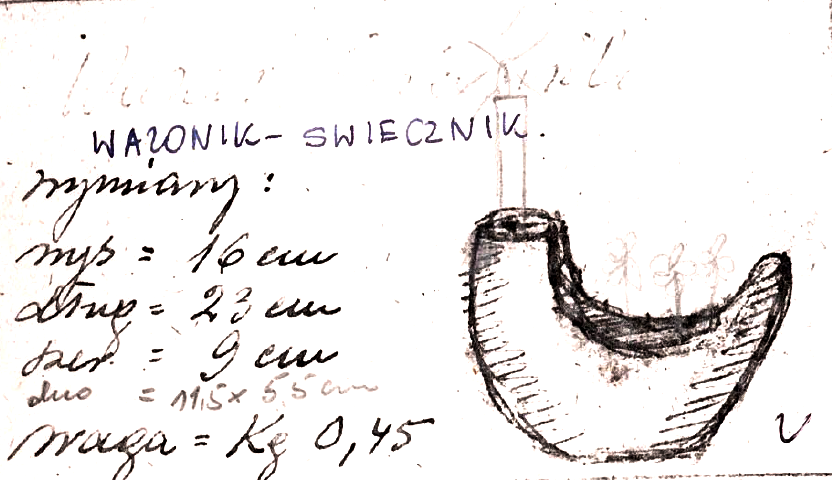 WAZONIK - SWIECZNIK.
wymiary:
wys = 16 cm
dług = 23 cm
szer = 9 cm
dno = 11,5 x 5,5 cm
waga = Kg 0,45
V